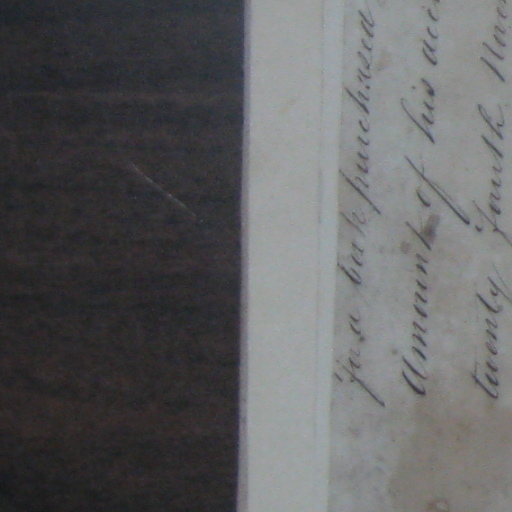 For a book purchased
Amount of his acc
twenty fourth